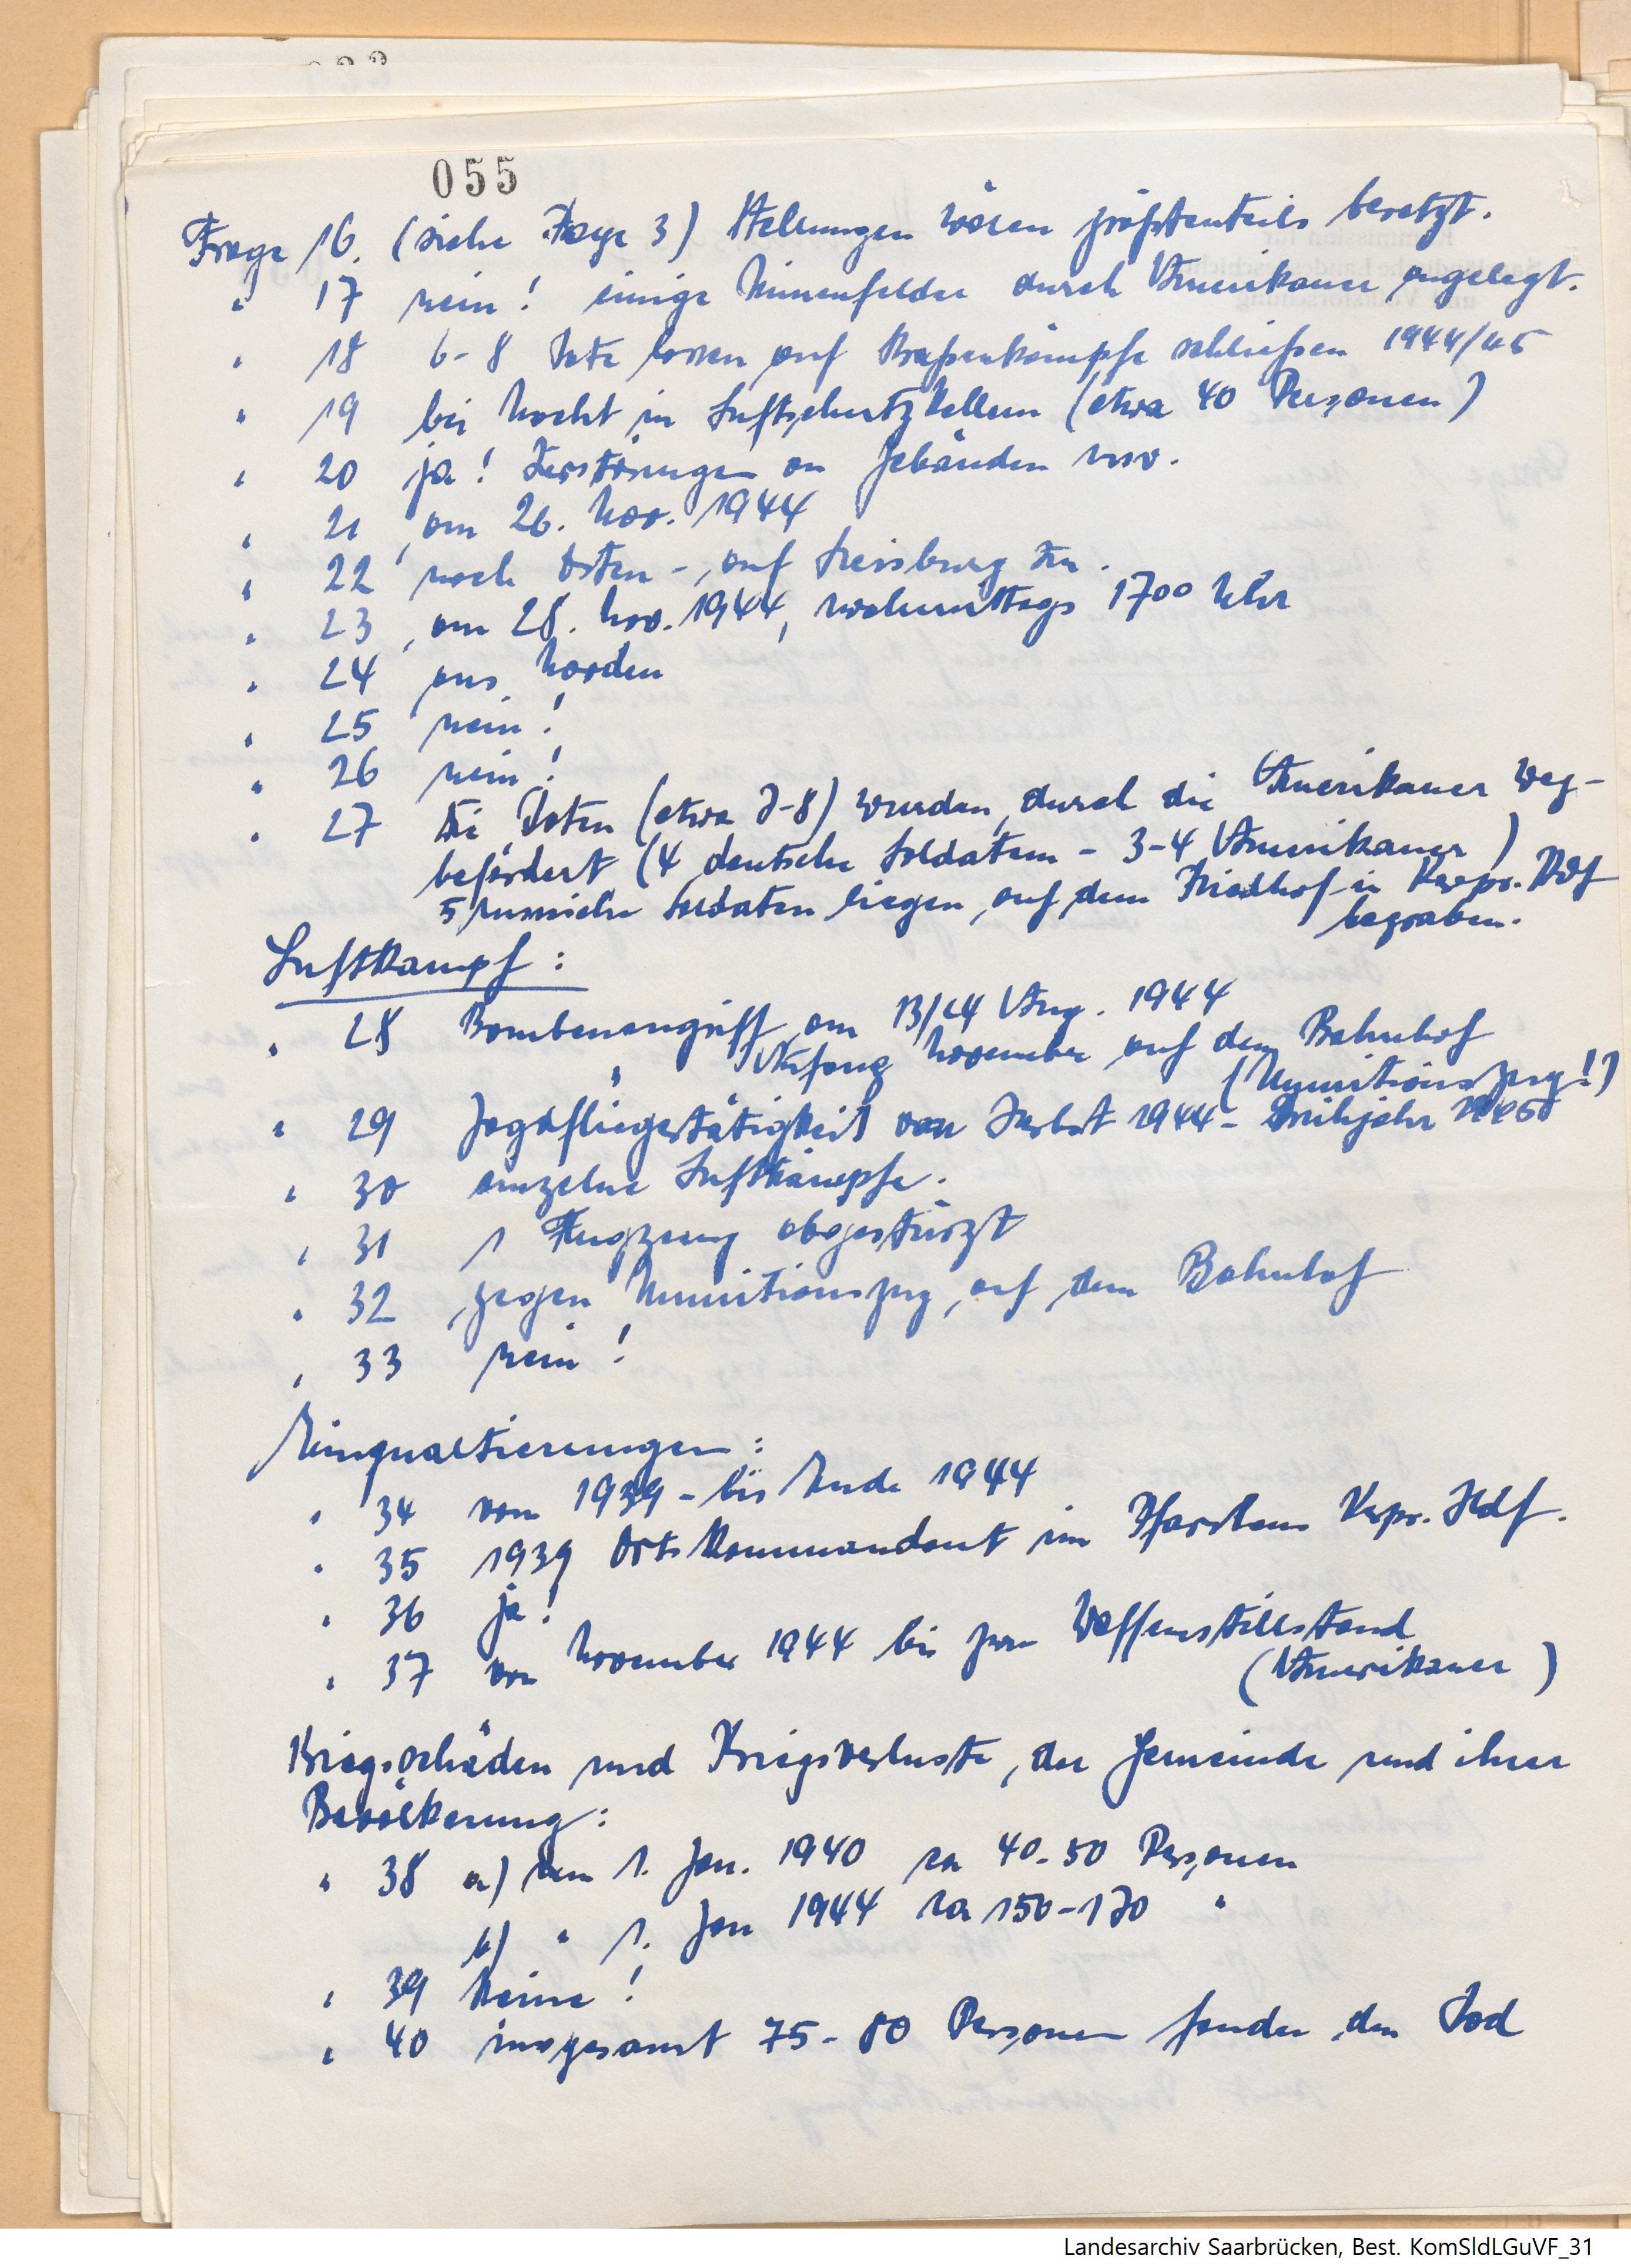 055
Frage 16. (siehe Frage 3) Stellungen wären größtenteils besetzt.
" 17 nein! einige Minenfelder durch Amerikaner angelegt.
" 18 6-8 Tote lassen auf Straßenkämpfe schließen 1944/45
" 19 bei Nacht in Luftschutzkellern (etwa 40 Personen)
" 20 ja! Zerstörungen an Gebäuden usw.
" 21 am 26. Nov. 1944
" 22 nach Osten -, auf zu.
" 23 am 28. Nov. 1944, nachmittags 17⁰⁰ Uhr
" 24 aus Norden
" 25 nein!
" 26 nein!
" 27 Die Toten (etwa 7-8) wurden durch die Amerikaner weg-
befördert (4 deutsche Soldaten - 3-4 Amerikaner)
5 russische Soldaten liegen auf dem Friedhof in
begraben.
Luftkampf:
" 28 Bombenangriff am 13/14 Aug. 1944
" Anfang November auf den Bahnhof
(Munitionszug!)
" 29 Jagdfliegertätigkeit von Herbst 1944 - Frühjahr 1945
" 30 einzelne Luftkämpfe.
" 31 1 Flugzeug abgestürzt
" 32 gegen Munitionszug auf dem Bahnhof
" 33 nein!
Einquartierungen:
" 34 von 1939 - bis Ende 1944
" 35 1939 Ortskommandant im Pfarrhaus Hdf.
" 36 ja!
" 37 von November 1944 bis zum Waffenstillstand
(Amerikaner)
Kriegsschäden und Kriegsverluste, der Gemeinde und ihrer
Bevölkerung:
" 38 a) am 1. Jan. 1940 ca 40-50 Personen
b) " 1. Jan 1944 ca 150-170 "
" 39 keine!
" 40 insgesamt 75-80 Personen fanden den Tod
Landesarchiv Saarbrücken, Best. KomSldLGuVF_31